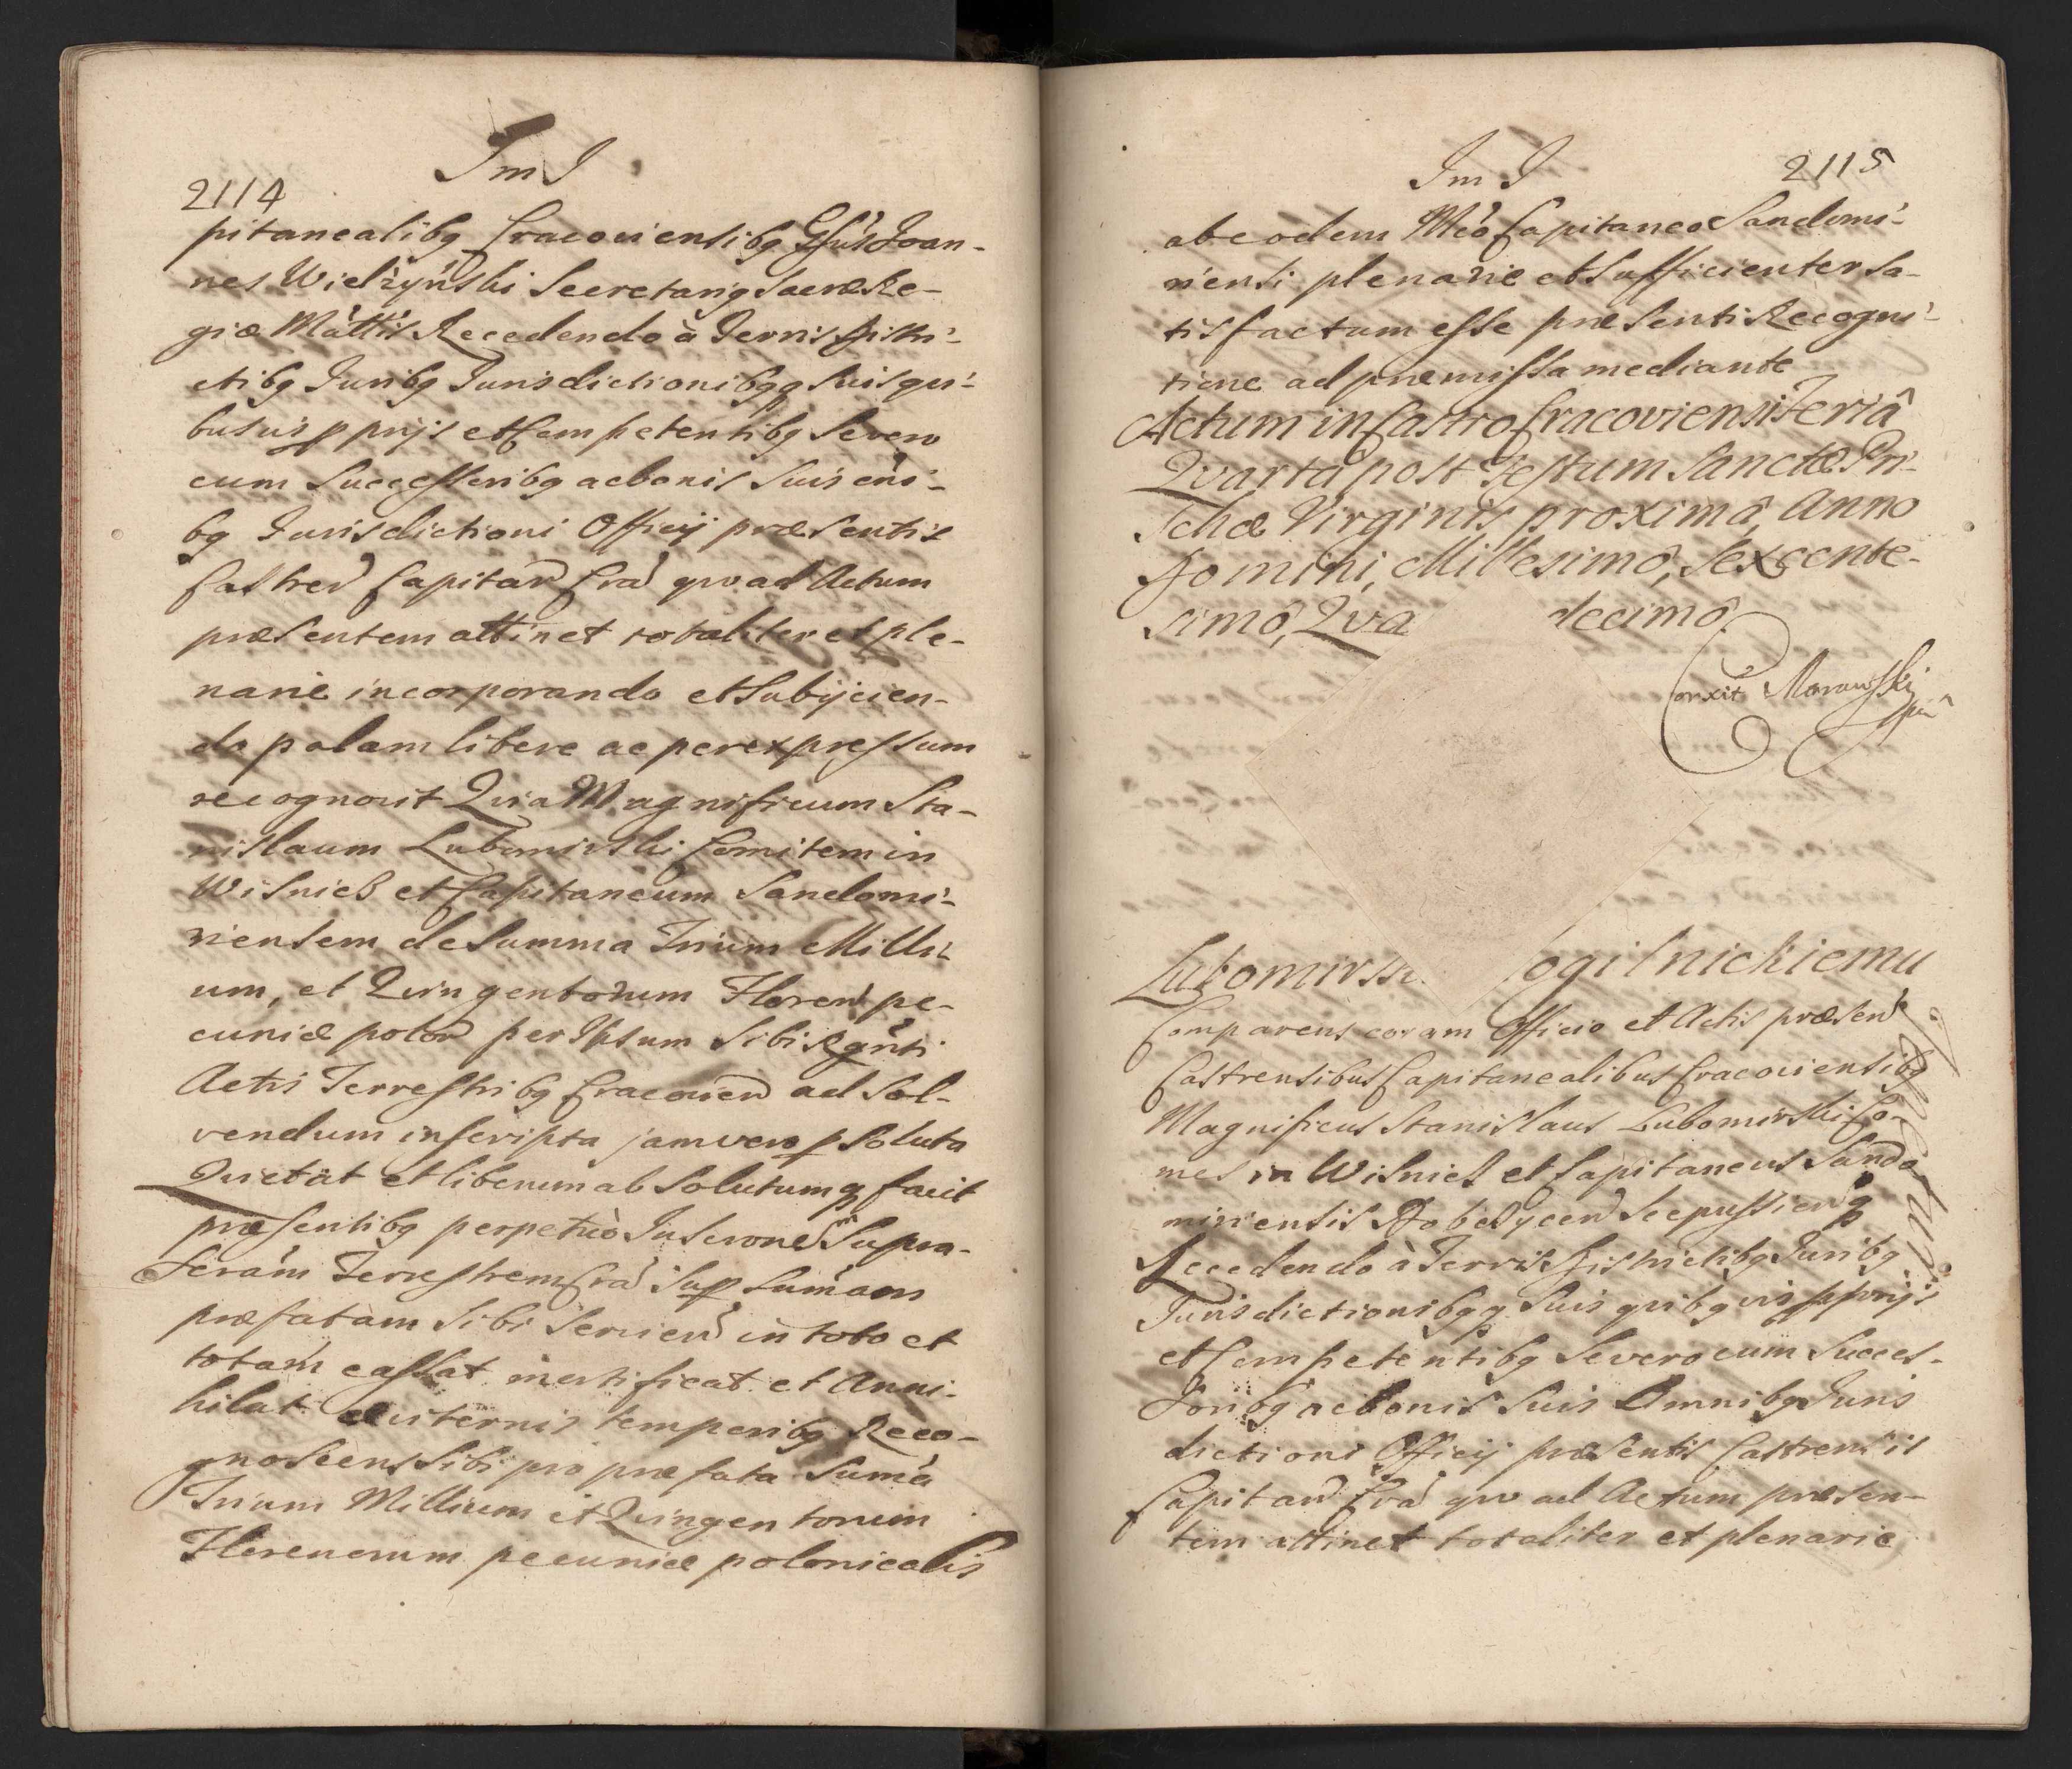 2114
Im I
pitanealibq Cracoviensibq Gsus Joan-
nes Wielżyński Secretariq Sacræ Re-
giæ Mattis Recedendo à Terris Distri-
ctibq Juribq Jurisdictionibqq suis qui-
busvis pprijs et Competentibq Se vero
cum Successoribq ac bonis suis oni-
bq Jurisdictioni Officij præsentis
Castren Capitan Cra quo ad Actum
præsentem attinet totaliter et ple-
narie incorporando et Subijcien-
do palam libere ac per expressum
recognovit Quia Magnificum Sta-
nislaum Lubomirski Comitem in
Wisnicz et Capitaneum Sandomi-
riensem de Summa Trium Milli-
um, et Quingentorum Floren pe-
cuniæ polon per Ipsum Sibi Rgnti
Actis Terrestribq Cracovien ad Sol-
vendum inscripta jam vero p Soluta
Quietat et liberum ab Solutumqq facit
præsentibq perpetuò Inscrone Supra-
scram Terrestrem Cra sup Sumam
præfatam Sibi Servien in toto et
totam cassat mortificat et Anni-
hilat æviternis temporibq Reco-
gnoscens Sibi pro præfata Suma
Trium Millium et Quingentorum
Florenorum pecuniæ polonicalis
Im I
2115
ab eodem Mco Capitaneo Sandomi-
riensi plenarie et Sufficienter Sa-
tisfactum esse præsenti Recogni-
tione ad præmissa mediante
Actum in Castro Cracoviensi Feriâ
Qvarta post Festum Sanctæ Pri-
schæ Virginis proximâ, Anno
Domini, Millesimô, Sexcente-
simô, Qva decimô
Corxit Morawski
Lubomirsk ogilnickiemu
Comparens coram Officio et Actis præsent
Castrensibus Capitanealibus Cracoviensibq
Magnificus Stanislaus Lubomirski Co-
mes in Wisnicz et Capitaneus Sando
miriensis Dobczycen Scepussienq
Recedendo à Terris Districtibq Juribq
Jurisdictionibqq Suis quibqvis pprijs
et Competentibq Se vero cum Succes-
soribq ac bonis Suis Omnibq Juris
dictioni Officij præsentis Castrensis
Capitan Cra quo ad Actum præsen-
tem attinet totaliter et plenarie